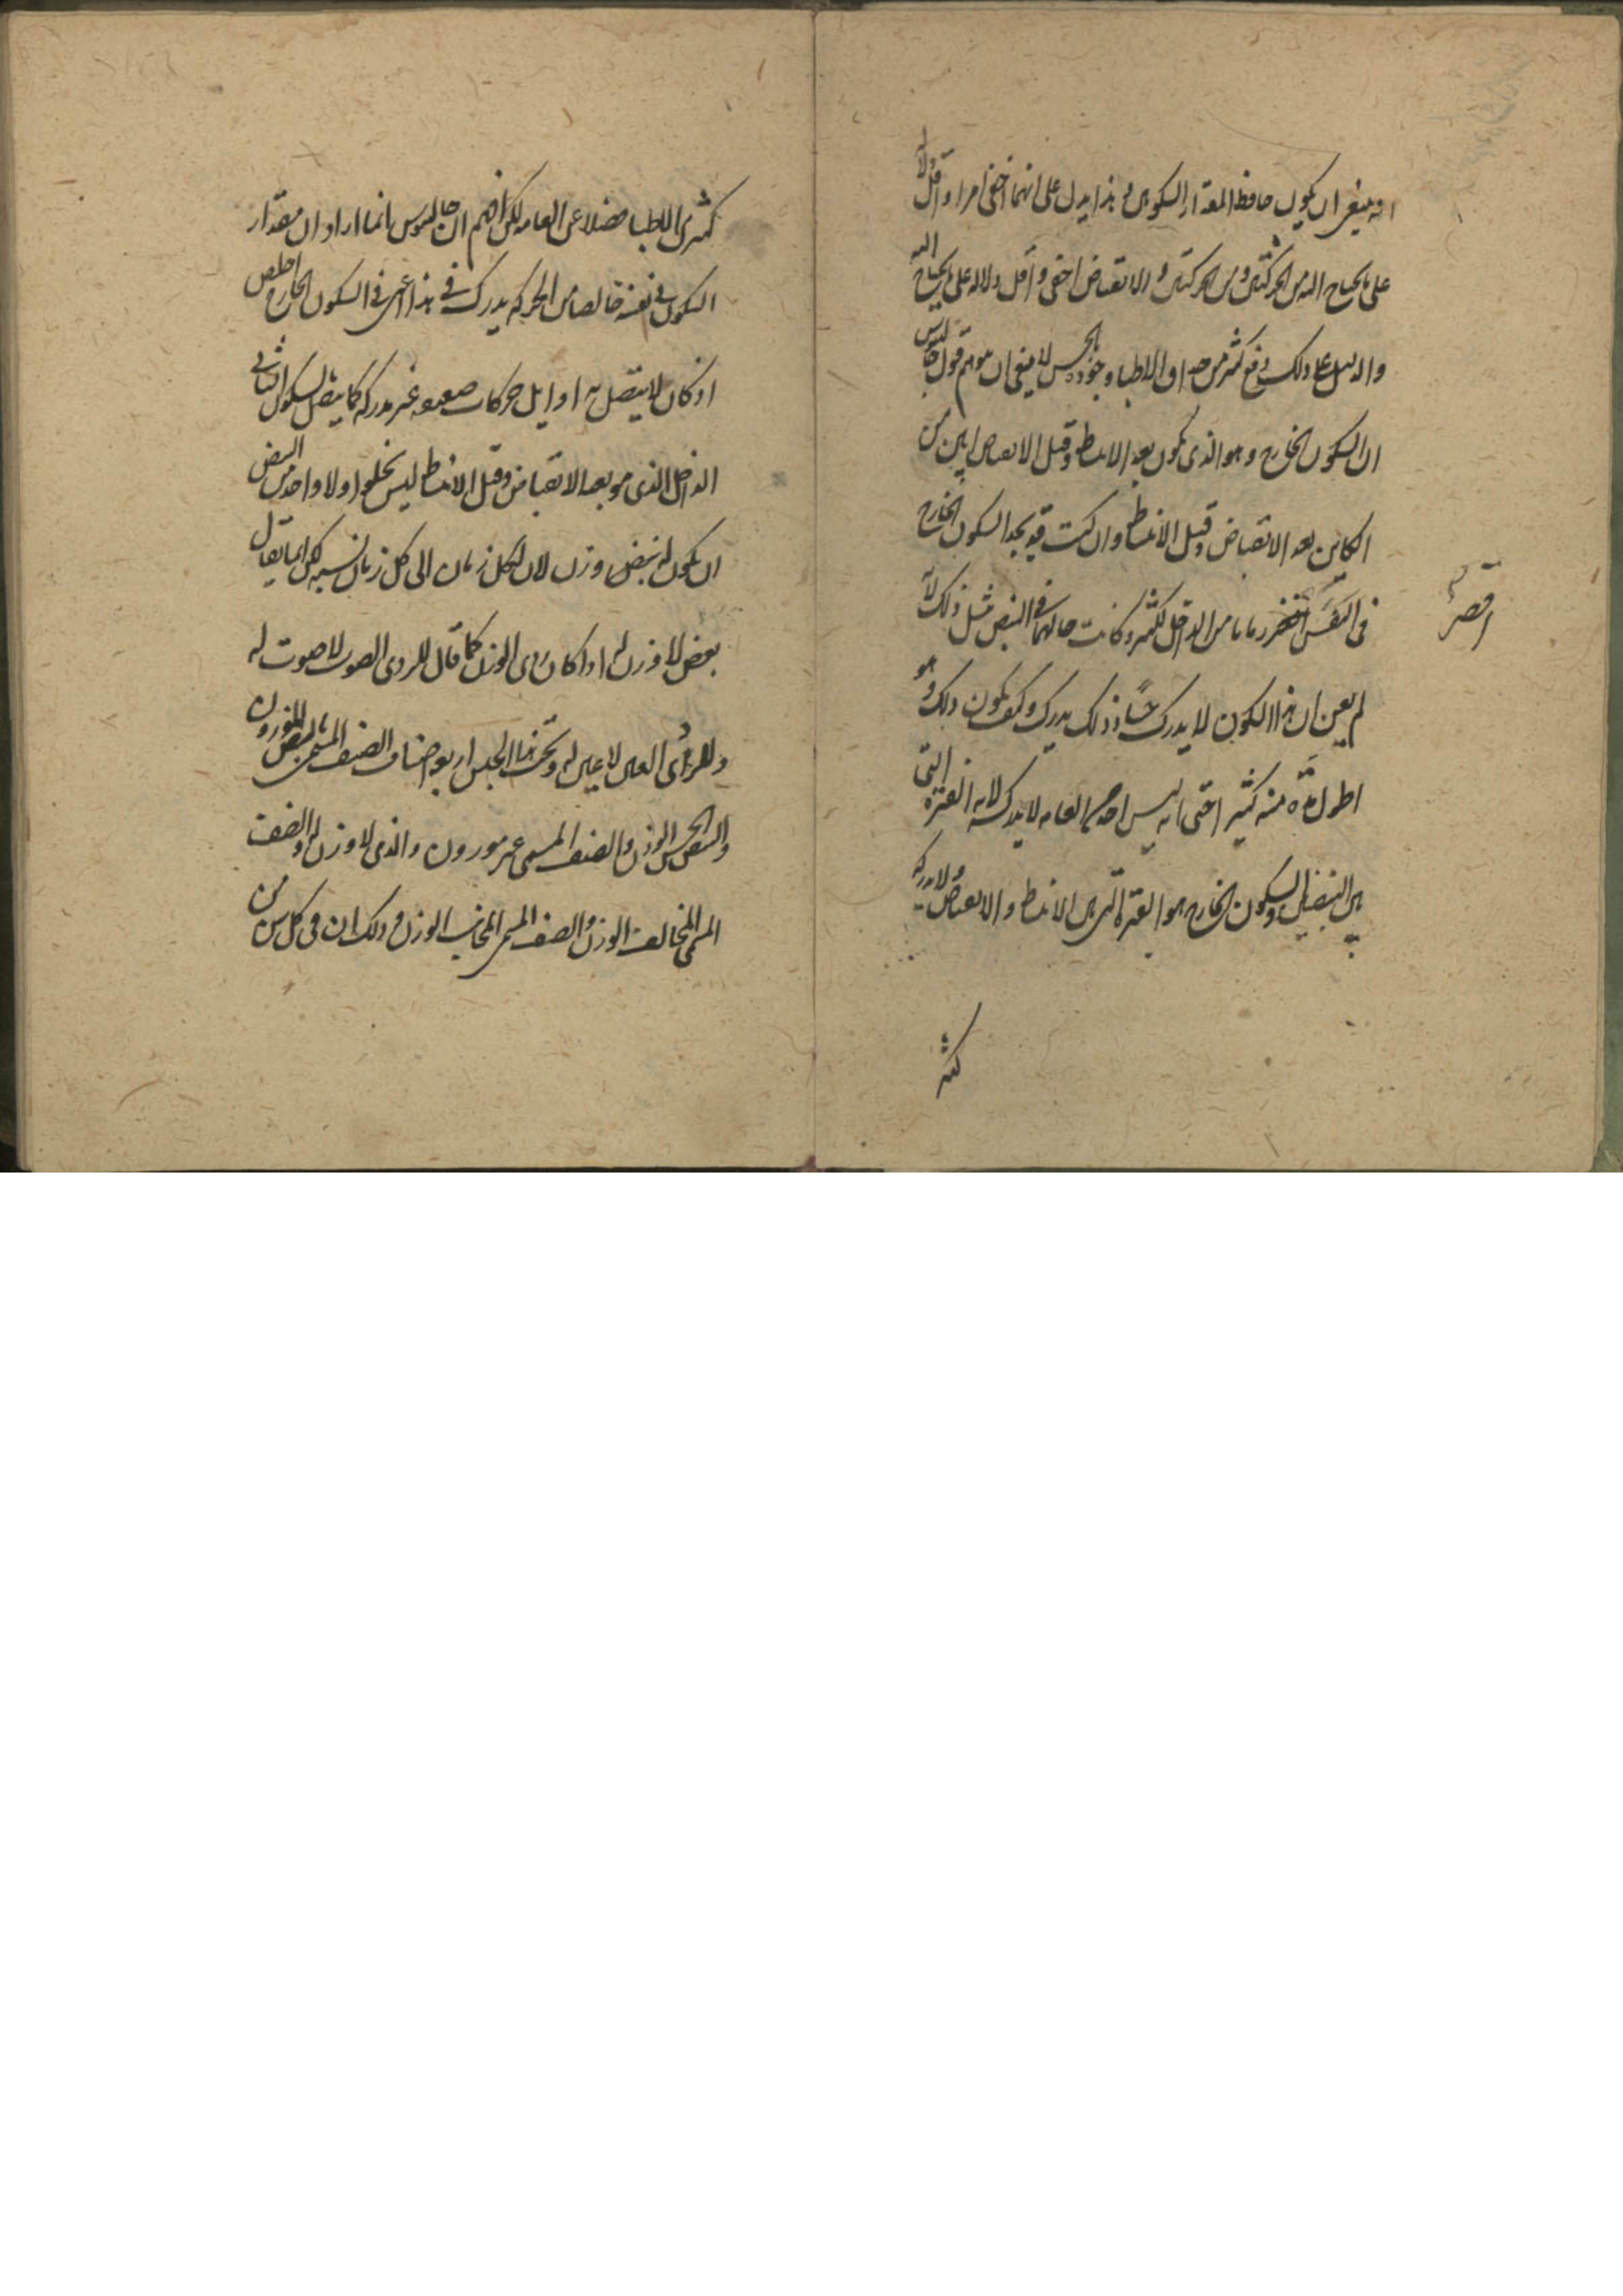 انه ينبغى ان يكون حافظ المقدار السكونين وهذا يدل على انهما اخفى امرا واقل دلالة
على ما يحتاج اليه من الحركتين ومن الحركتين والانقباض اخفى واقل دلاله على ما يحتاج اليه
والدليل على ذلك دفع كثير من حداق الاطباء وجوده بالحس لا ينبغى ان يتوهم قول جالينوس
ان السكون الخارج وهو الذى يكون بعد الانبساط وقبل الانقباض ابين من
الكاين بعد الانقباض وقبل الانبساط وان كنت قد تجد السكون الخارج
فى التنفس اقصر زمانا من الداخل كثير وكانت حالهما فى النبض مثل ذلك لانه
لم يعن ان هذا السكون لا يدرك حسا وذلك يدرك وكيف يكون ذلك وهو
اطول مدة منه كثيرا حتى انه ليس احد من العامه لا يدركه لانه الفترة التى
بين النبضتين والسكون الخارج هو الفترة التى بين الانبساط والانقباض ولا يدركه
اقصر
كثير
كثير من الاطبا فضلا عن العامه لكن افهم ان جالينوس انما اراد ان مقدار
السكون فى نفسه خالصا من الحركه يدرك فى هذا اعنى فى السكون الخارج اخلص
اذ كان لا يتصل به اوايل حركات ضعيفه غير مدركه كما يتصل بالسكون الثانى
الداخل الذى هو بعد الانقباض وقبل الانبساط ليس يخلوا ولا واحد من النبض
ان يكون له نبض وزن لان لكل زمان الى كل زمان نسبه لكن انما يقال
نبض لا وزن له اذا كان ردى الوزن كما قال للردى الصوت لا صوت له
وللردى العين لا عين له وتحت هذا الجنس اربعه اصناف الصنف المسمى بالنبض الموزون
والنبض الحسن الوزن والصنف المسمى غير موزون والذى لا وزن له والصنف
المسمى المخالف الوزن والصنف المسمى المجانب الوزن وذلك ان فى كل سن من